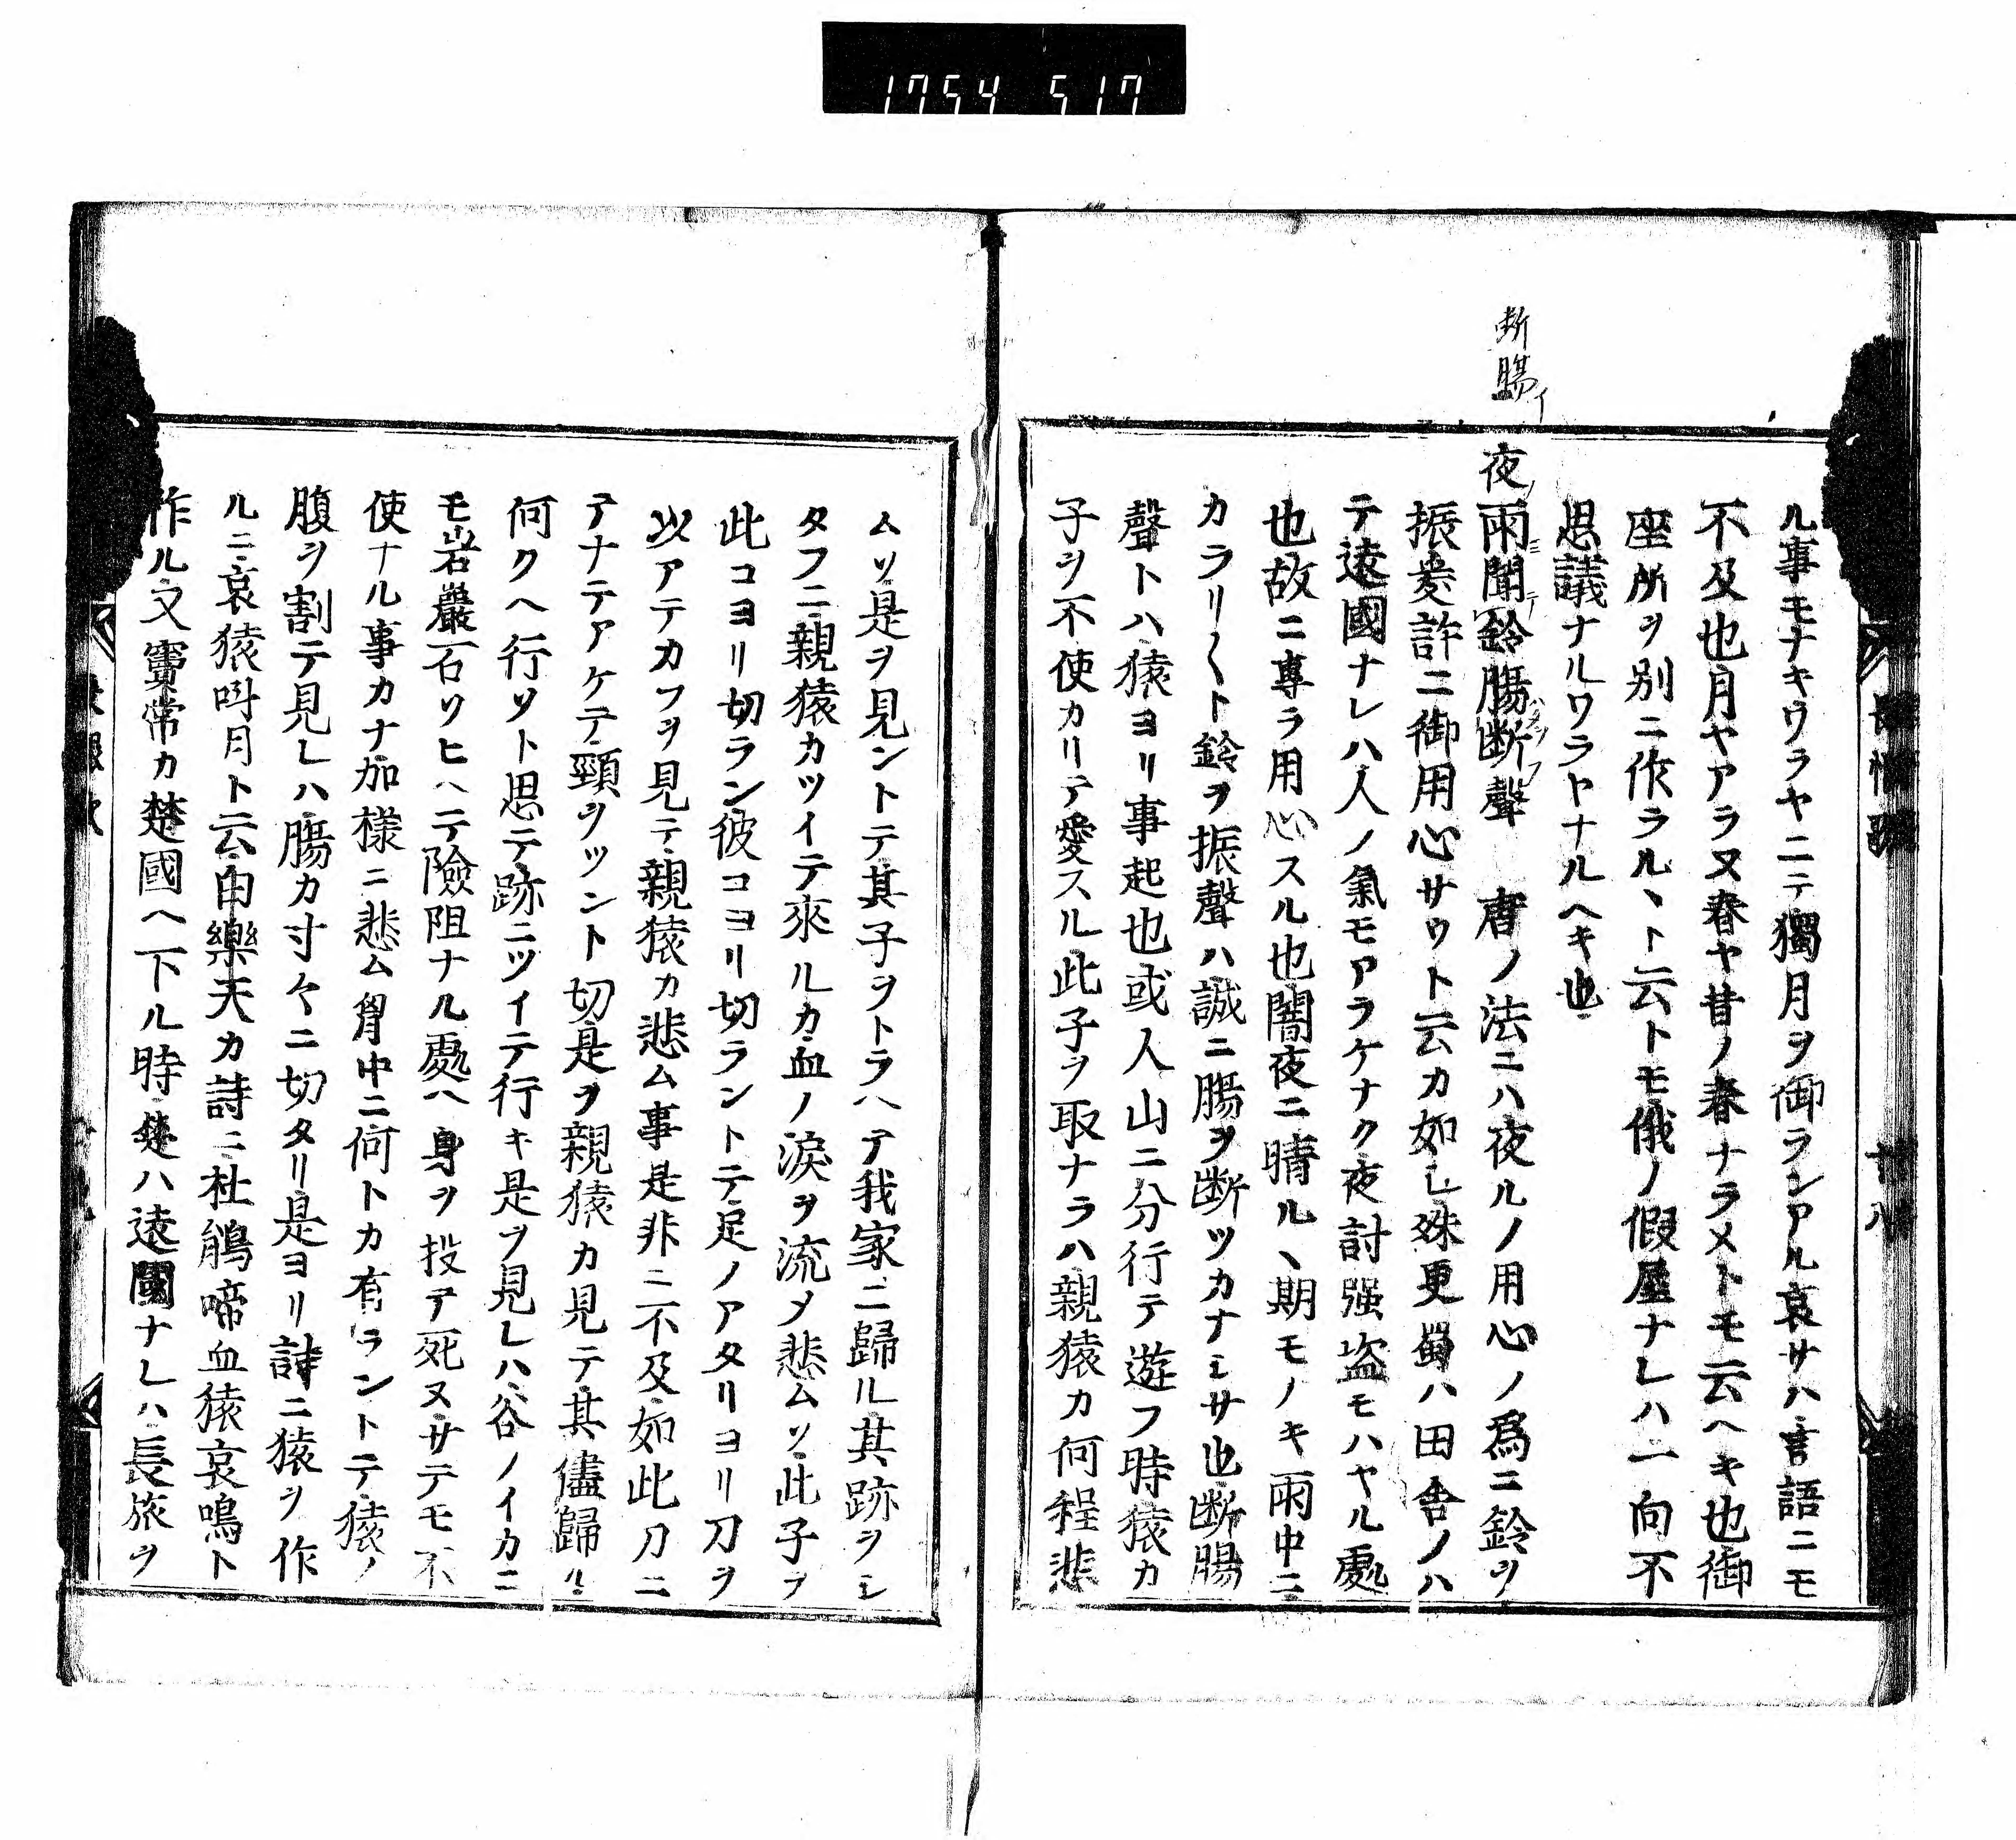 1754 517
断腸イ
ル事モナキワラヤニテ獨月ヲ御ランアル哀サハ言語ニモ
不及也月ヤアラヌ春ヤ昔ノ春ナラメトモ云ヘキ也御
座所ヲ別ニ作ラルヽト云トモ俄ノ假屋ナレハ一向不
思議ナルワラヤナルヘキ也
夜雨聞鈴腸断聲 唐ノ法ニハ夜ルノ用心ノ爲ニ鈴ヲ
振爰許ニ御用心サウト云カ如シ殊更蜀ハ田舎ノハ
テ遠國ナレハ人ノ氣モアラケナク夜討强盗モハヤル處
也故ニ專ラ用心スル也闇夜ニ晴ルヽ期モノキ雨中ニ
カラリ〱ト鈴ヲ振聲ハ誠ニ腸ヲ断ツカナシサ也断腸
聲トハ猿ヨリ事起也或人山ニ分行テ遊フ時猿カ
子ヲ不使カリテ愛スル此子ヲ取ナラハ親猿カ何程悲
ムソ是ヲ見ントテ其子ヲトラヘテ我家ニ歸ル其跡ヲシ
タフニ親猿カツイテ來ルカ血ノ涙ヲ流メ悲ムソ此子ヲ
此コヨリ切ラン彼コヨリ切ラントテ足ノアタリヨリ刀ヲ
以アテカフヲ見テ親猿カ悲ム事是非ニ不及如此刀ニ
テナテアケテ頸ヲツント切是ヲ親猿カ見テ其儘歸ル
何クヘ行ソト思テ跡ニツイテ行キ是ヲ見レハ谷ノイカニ
モ岩巖石ソヒヘテ險阻ナル處ヘ身ヲ投テ死ヌサテモ不
使ナル事カナ加様ニ悲ム胷中ニ何トカ有ラントテ猿ノ
腹ヲ割テ見レハ腸カ寸々ニ切タリ是ヨリ詩ニ猿ヲ作
ルニ哀猿呌月ト云白樂天カ詩ニ杜鵑啼血猿哀鳴ト
作ル又竇常カ楚國ヘ下ル時楚ハ遠國ナレハ長旅ヲ